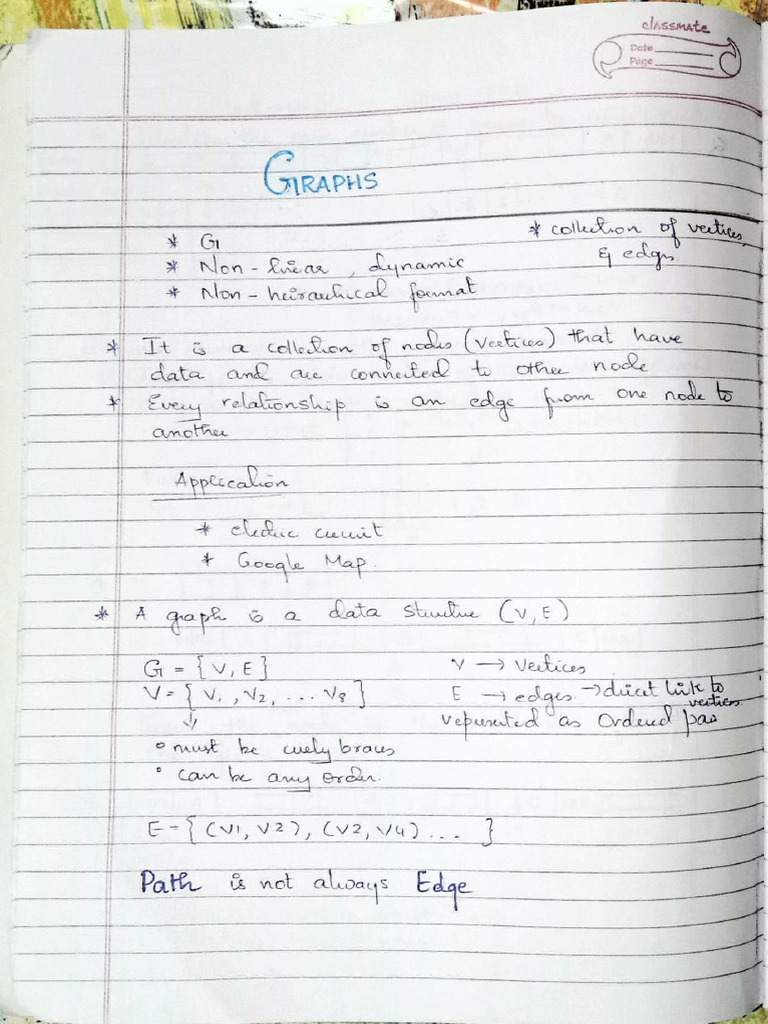 classmate
Date
Page
GRAPHS
* G
* collection of vertices
& edges
* Non-linear, dynamic
* Non-heirarchical format
* It is a collection of nodes (vertices) that have
data and are connected to other node
* Every relationship is an edge from one node to
another
Application
* electric circuit
* Google Map.
* A graph is a data structure (V, E)
G = { V, E }
V → vertices
V = { V1, V2, ... V8 }
E → edges → direct link to
vertices
represented as ordered pair
° must be curly braces
° can be any order.
E = { (V1, V2), (V2, V4) ... }
Path is not always Edge